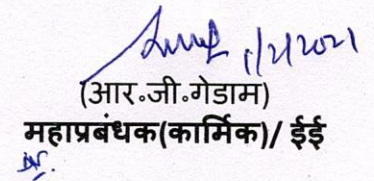 1/2/2021
(आर.जी.गेडाम)
महाप्रबंधक(कार्मिक)/ ईई